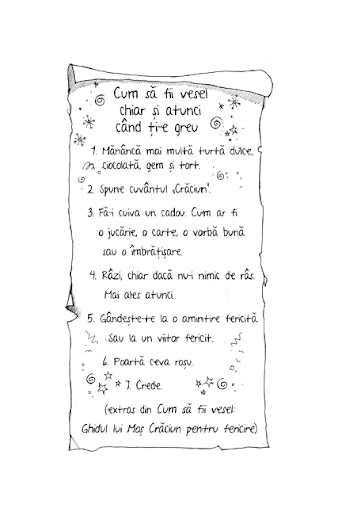 Cum să fii vesel
chiar și atunci
când ți-e greu
1. Mănâncă mai multă turtă dulce,
ciocolată, gem și tort.
2. Spune cuvântul „Crăciun".
3. Fă-i cuiva un cadou. Cum ar fi
o jucărie, o carte, o vorbă bună
sau o îmbrățișare.
4. Râzi, chiar dacă nu-i nimic de râs.
Mai ales atunci.
5. Gândește-te la o amintire fericită.
Sau la un viitor fericit.
6. Poartă ceva roșu.
7. Crede.
(extras din Cum să fii vesel:
Ghidul lui Moș Crăciun pentru fericire)